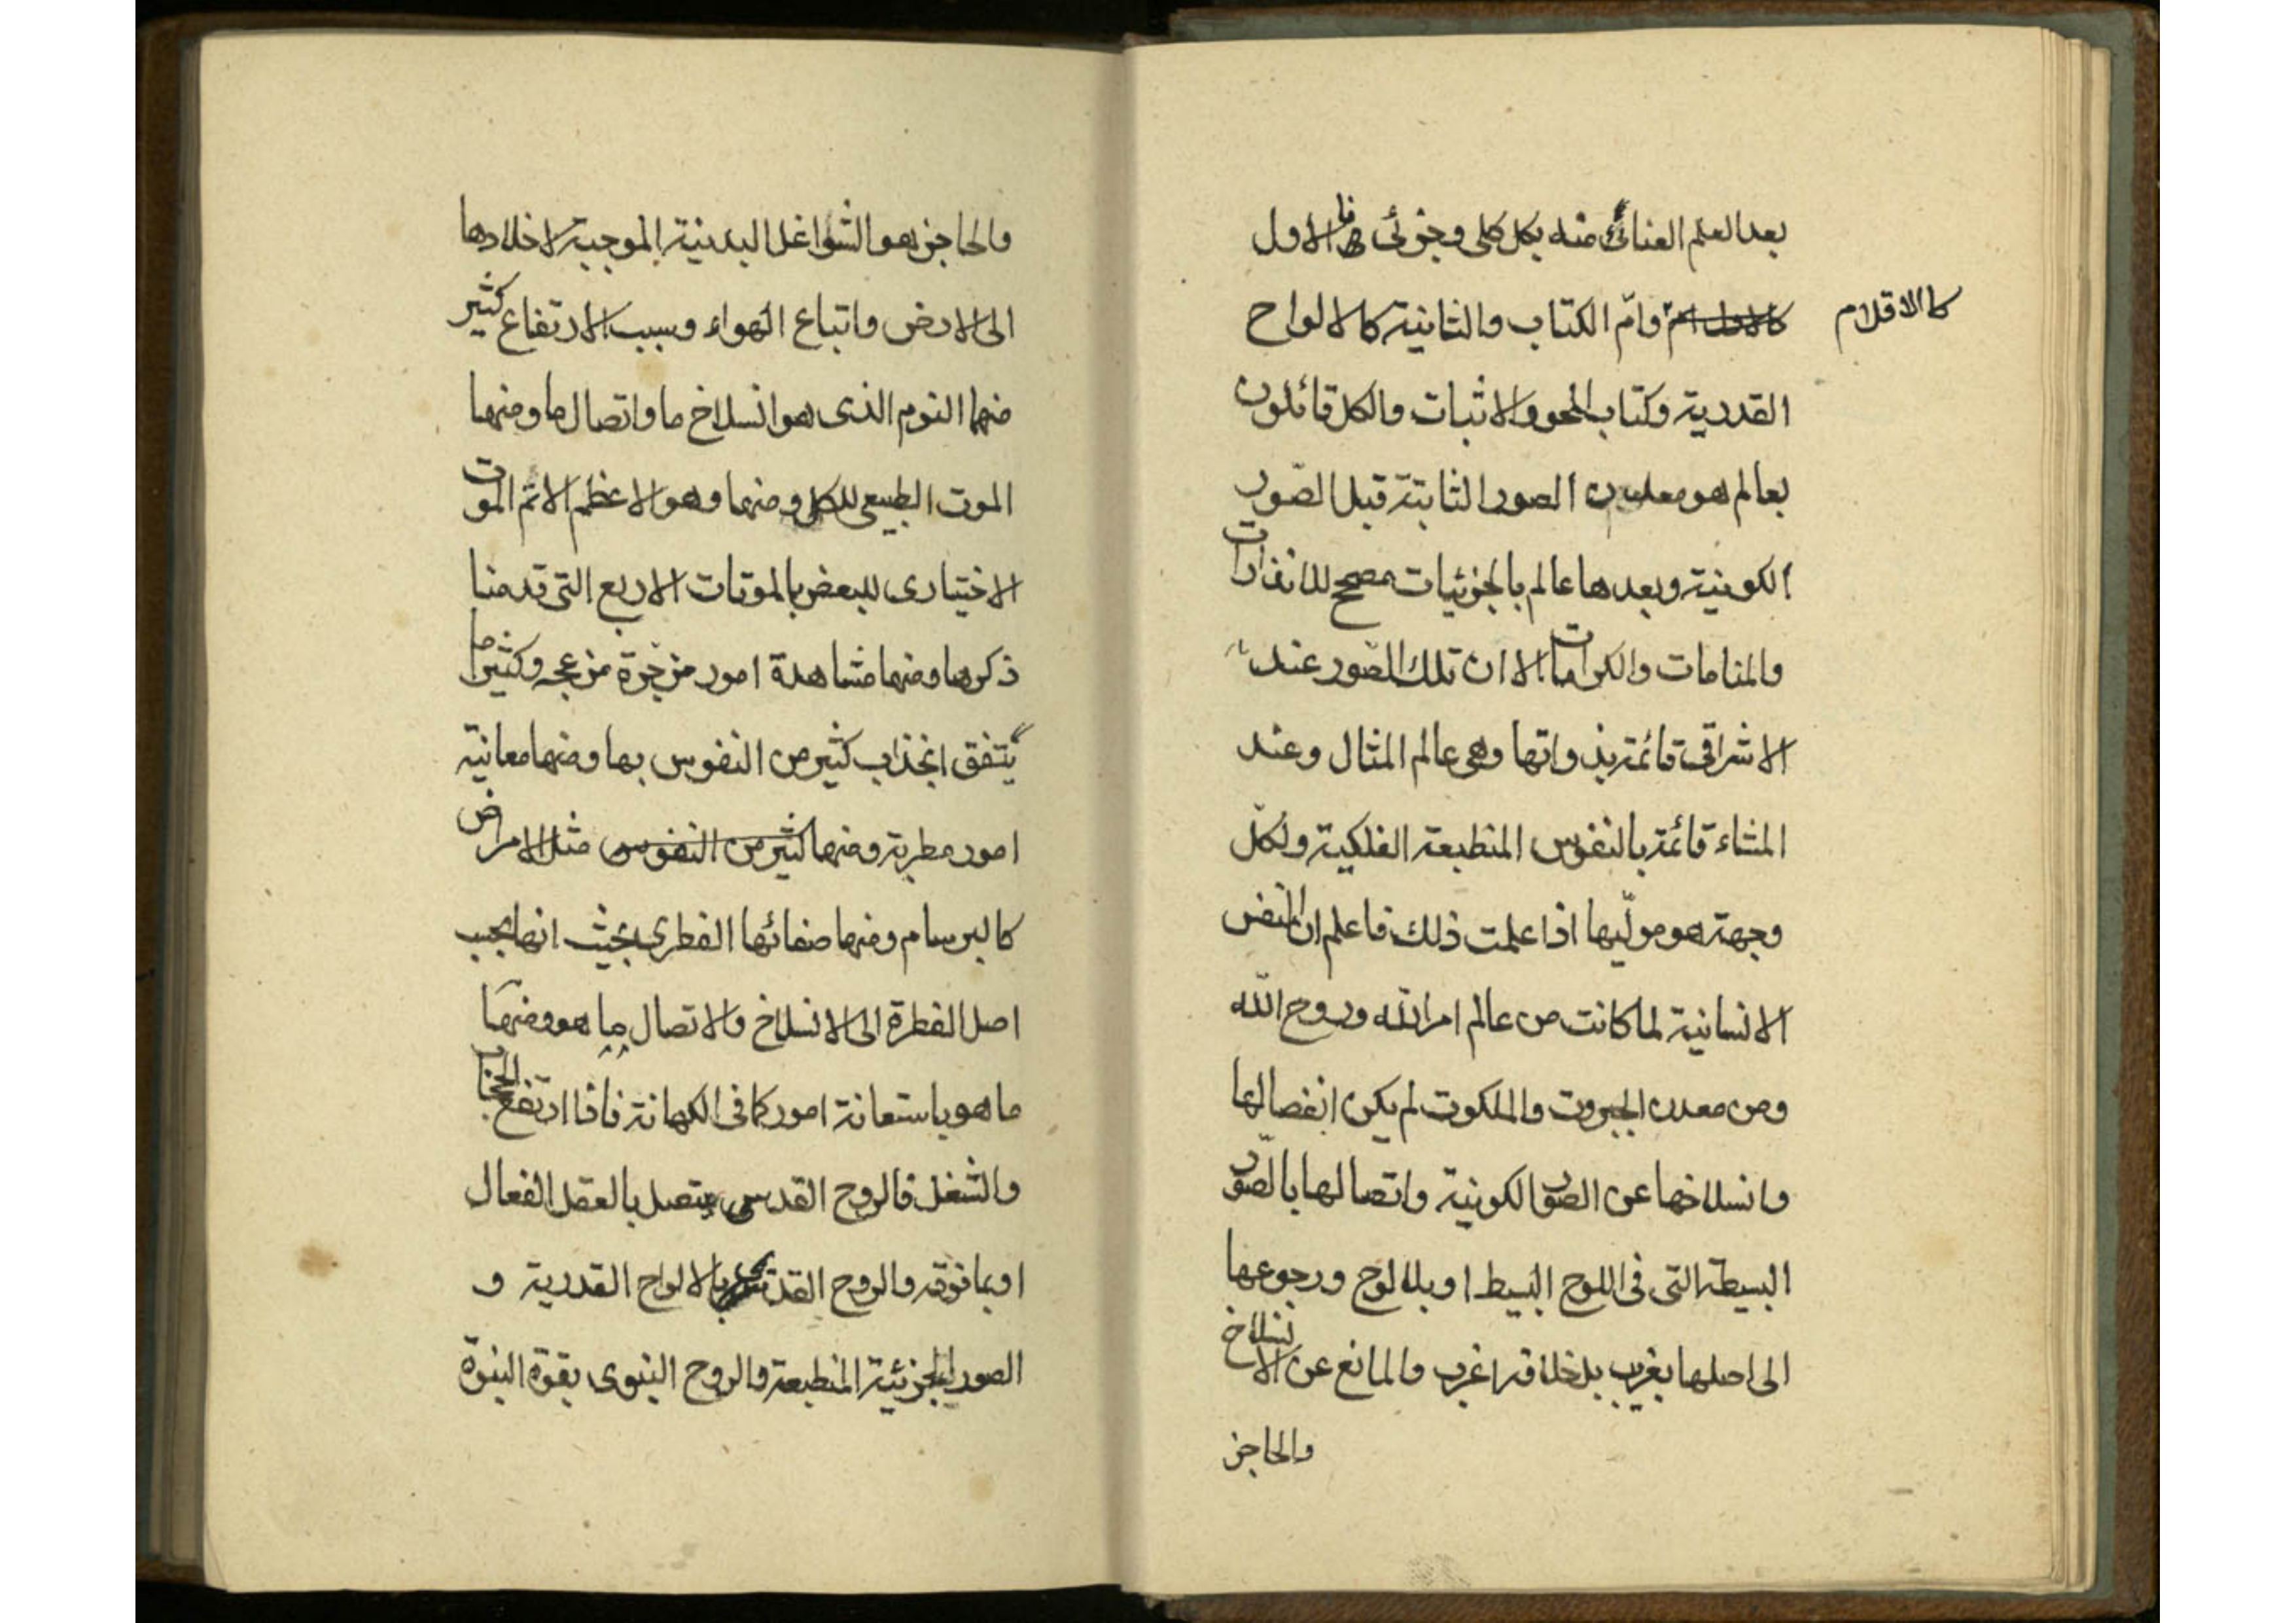 بعد العلم العنائى منه بكل كلى وجزئى فالاول
كالاقلام
وامّ الكتاب والثانية كالالواح
القدرية وكتاب المحو والاثبات والكل قائلون
بعالم هو معدن الصور الثابتة قبل الصّور
الكونية وبعدها عالم بالجزئيات مصحح للانذارات
والمنامات والكرامات الا ان تلك الصّور عند
الاشراقى قائمة بذواتها وهى عالم المثال وعند
المشاء قائمة بالنفوس المنطبعة الفلكية ولكلّ
وجهة هو مولّيها اذا علمت ذلك فاعلم ان النفس
الانسانية لما كانت من عالم امر الله وروح الله
ومن معدن الجبروت والملكوت لم يكن انفصالها
وانسلاخها عن الصّور الكونية واتصالها بالصّور
البسيطة التى فى اللوح البسيط او بلا لوح ورجوعها
الى اصلها بغريب بل خلافه اغرب والمانع عن الانسلاخ
والحاجز
والحاجز هو الشواغل البدنية الموجبة لاخلادها
الى الارض واتباع الهواء وسبب الارتفاع كثير
منها النوم الذى هو انسلاخ ما واتصال ما ومنها
الموت الطبيعى للكل ومنها وهو الاعظم الاتم الموت
الاختيارى للبعض بالموتات الاربع التى قدمنا
ذكرها ومنها مشاهدة امور مزجرة مزعجه وكثيرا ما
يتفق انجذاب كثير من النفوس بها ومنها معانية
امور مطربة ومنها كثير من النفوس مثل الامراض
كالبرسام ومنها صفائها الفطرى بحيث انها بحسب
اصل الفطرة الى الانسلاخ والاتصال ما هو ومنها
ما هو باستعانة امور كما فى الكهانة فاذا ارتفع الحجاب
والشغل فالروح القدسى يتصل بالعقل الفعال
او بما فوقه والروح بالالواح القدرية و
الصور الجزئية المنطبعة والروح النبوى بقوة النبوة